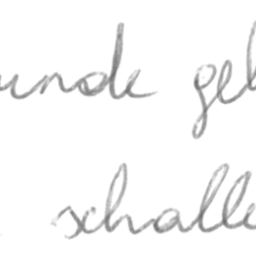 unde gel
schalle